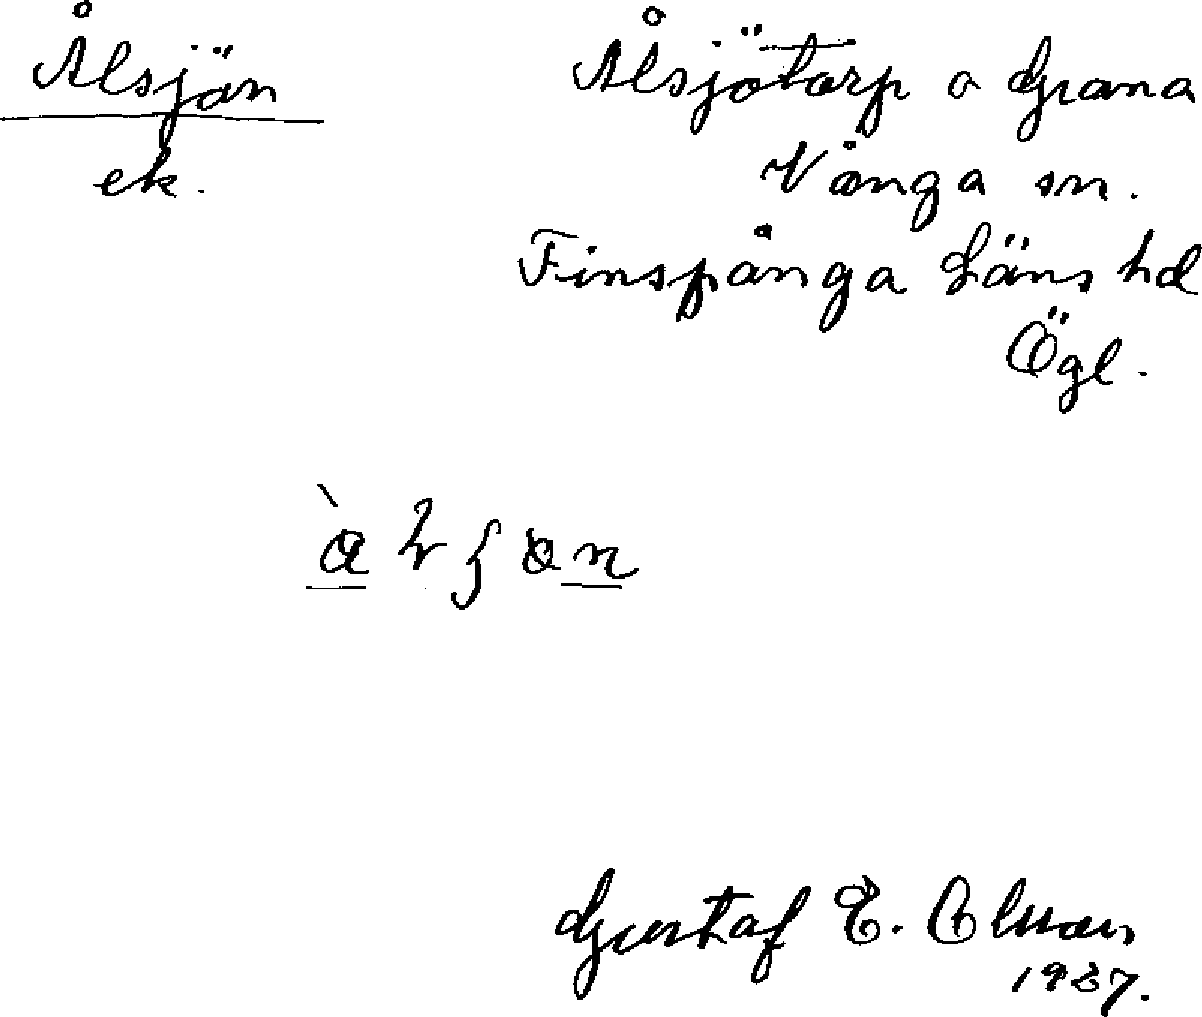 Ålsjön
ek.
Ålsjötorp o Grana
Vånga sn.
Finspånga Läns hd
Ögl.
Gustaf E. Olsson
1937.